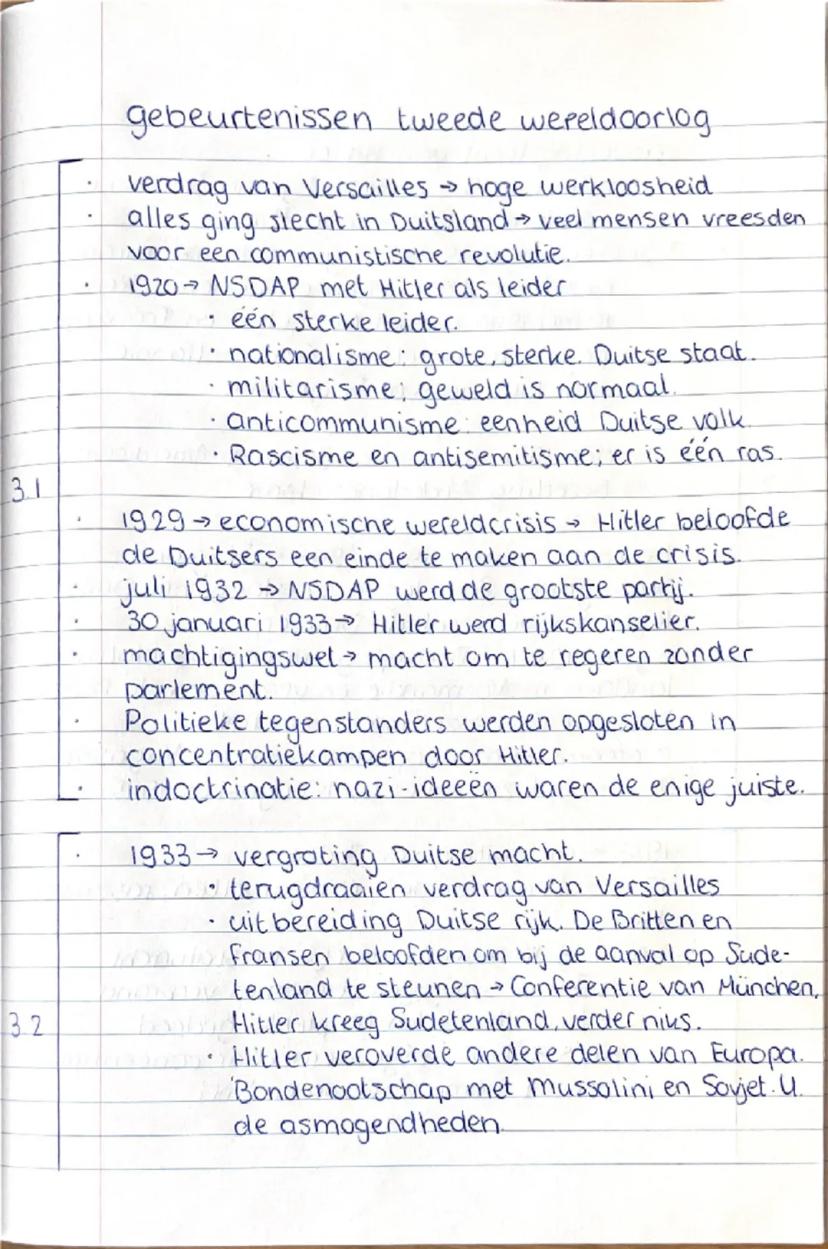 gebeurtenissen tweede wereldoorlog
· verdrag van Versailles → hoge werkloosheid
· alles ging slecht in Duitsland → veel mensen vreesden
voor een communistische revolutie.
· 1920 → NSDAP met Hitler als leider
· één sterke leider.
· nationalisme: grote, sterke Duitse staat.
· militarisme; geweld is normaal.
· anticommunisme: eenheid Duitse volk
· Rascisme en antisemitisme; er is één ras.
3.1
· 1929 → economische wereldcrisis → Hitler beloofde
de Duitsers een einde te maken aan de crisis.
· juli 1932 → NSDAP werd de grootste partij.
· 30 januari 1933 → Hitler werd rijkskanselier.
· machtigingswet → macht om te regeren zonder
parlement.
· Politieke tegenstanders werden opgesloten in
concentratiekampen door Hitler.
· indoctrinatie: nazi-ideeën waren de enige juiste.
· 1933 → vergroting Duitse macht.
· terugdraaien verdrag van Versailles
· uitbereiding Duitse rijk. De Britten en
Fransen beloofden om bij de aanval op Sude-
tenland te steunen → Conferentie van München,
3.2 Hitler kreeg Sudetenland, verder niks.
· Hitler veroverde andere delen van Europa.
Bondenootschap met Mussolini en Sovjet. U.
de asmogendheden.